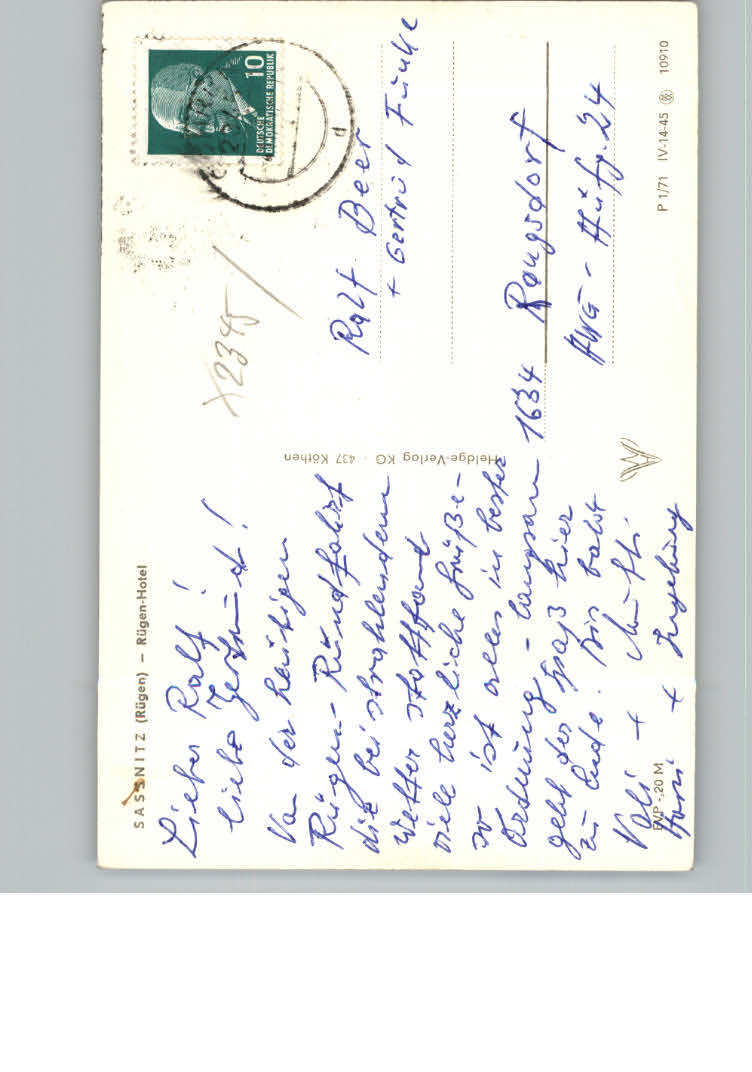 SASSNITZ (Rügen) – Rügen-Hotel
Lieber Ralf!
liebe Gertrud!
Von der heutigen
Rügen-Rundfahrt
die bei strahlendem
Wetter stattfand
viele herzliche Grüße –
so ist alles in bester
Ordnung – langsam
geht der Spaß hier
zu Ende. Bis bald
Vati + Mutti
Hansi + Ingeburg
EVP -,20 M
Heldge-Verlag KG · 437 Köthen
10
DEUTSCHE
DEMOKRATISCHE REPUBLIK
X2345
Ralf Beer
+ Gertrud Funke
1634 Rangsdorf
AWG - Hüfg. 24
P 1/71 IV-14-45 10910